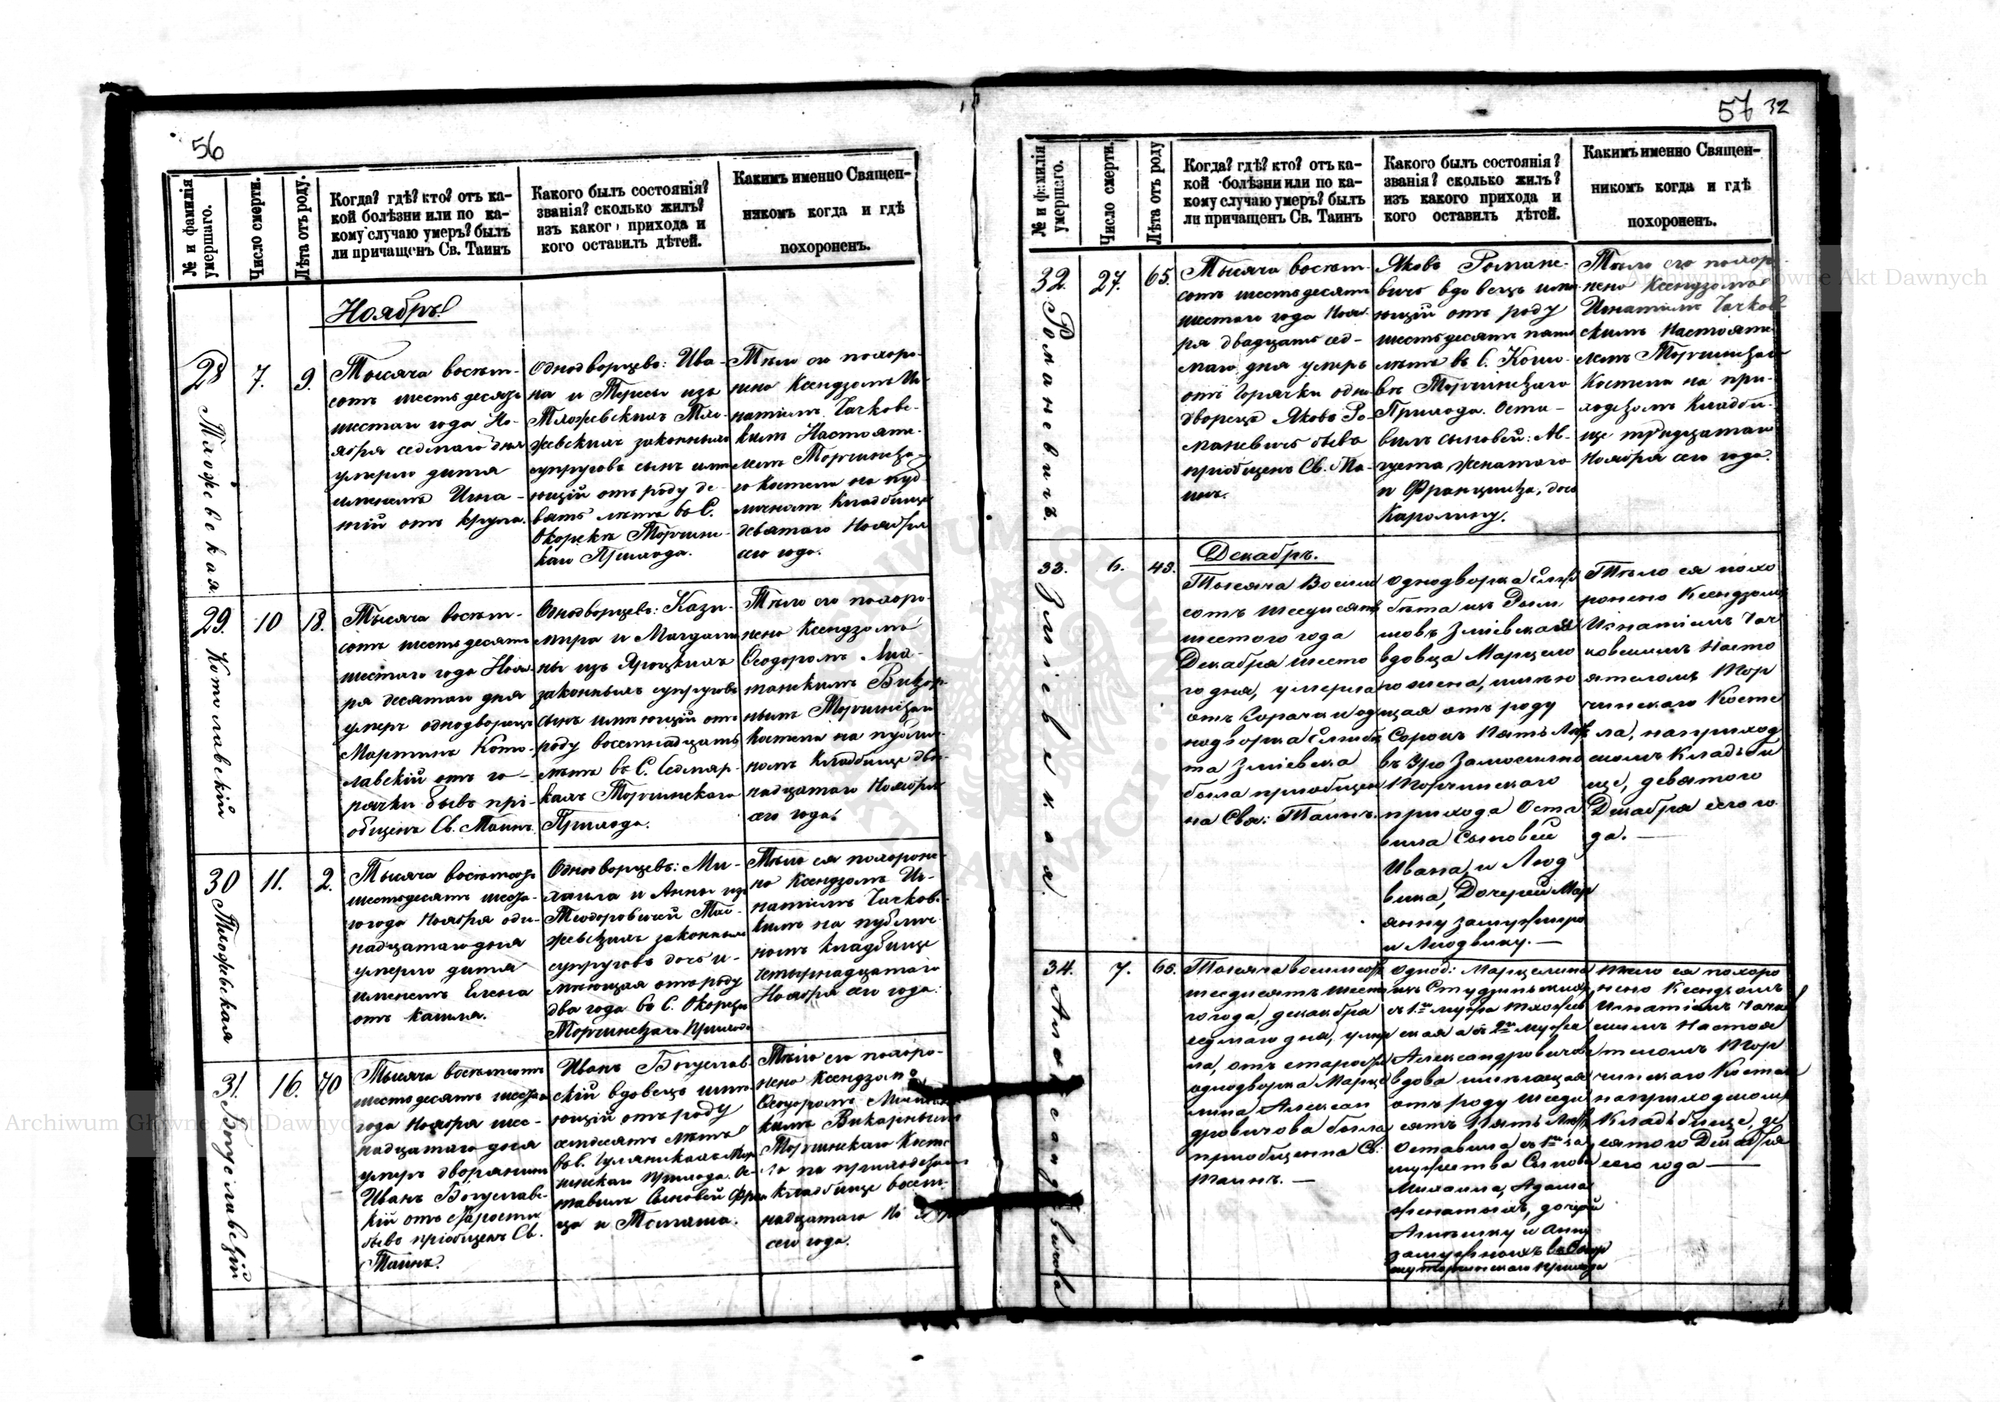 56
№ и фамилія
умершаго.
Число смерти.
Лѣта отъ роду.
Когда? гдѣ? кто? отъ ка-
кой болѣзни или по ка-
кому случаю умеръ? былъ
ли причащенъ Св. Таинъ
Какого былъ состоянія?
званія? сколько жилъ?
изъ какого прихода и
кого оставилъ дѣтей.
Какимъ именно Священ-
никомъ когда и гдѣ
похороненъ.
Ноябрь
28
7.
9.
Тысяча восем-
сотъ шестьдесятъ
шестаго года Но-
ября седьмаго дня
умерло дитя
именемъ Игна-
тій отъ крупа.
Однодворцевъ: Ива-
на и Тересы изъ
законныхъ
супруговъ сынъ имѣ-
ющій отъ роду де-
вять лѣтъ въ С.
Окорскѣ Торчин-
скаго Прихода.
Тѣло его похоро-
нено Ксендзомъ Иг-
натіемъ Чачковс-
кимъ Настояте-
лемъ Торчинска-
го костела на пуб-
личномъ кладбищѣ
девятаго Ноября
сего года.
29.
Котославскій
10
18.
Тысяча восем-
сотъ шестьдесятъ
шестаго года Нояб-
ря десятаго дня
умеръ однодворецъ
Мартинъ Кото-
славскій отъ го-
рячки бывъ прі-
общенъ Св. Таинъ.
Однодворцевъ: Кази-
мира и Магдали-
ны изъ
законныхъ супруговъ
сынъ имѣющій отъ
роду восемнадцать
лѣтъ въ С.
Торчинскаго
Прихода.
Тѣло его похоро-
нено Ксендзомъ
Ѳеодоромъ
Викар-
нымъ Торчинскаго
Костела на публич-
номъ кладбищѣ две-
надцатаго Ноября
сего года.
30
11.
2.
Тысяча восемьсотъ
шестьдесятъ шеста-
го года Ноября оди-
надцатаго дня
умерло дитя
именемъ Елена
отъ кашля.
Однодворцевъ: Ми-
хаила и Анны изъ
законныхъ
супруговъ дочь и-
мѣющая отъ роду
два года въ С. Окорскѣ
Торчинскаго Прихода
Тѣло ея похороне-
но Ксендзомъ Иг-
натіемъ Чачковс-
кимъ на публич-
номъ кладбищѣ
четырнадцатаго
Ноября сего года.
31.
Богуславскій
16.
70
Тысяча восемьсотъ
шестьдесятъ шестаго
года Ноября шес-
надцатаго дня
умеръ дворянинъ
Иванъ Богуславс-
кій отъ старости
бывъ пріобщенъ Св.
Таинъ.
Иванъ Богуслав-
скій вдовецъ имѣ-
ющій отъ роду
семдесятъ лѣтъ
Прихода. О-
ставилъ сыновей
и
Тѣло его похоро-
нено Ксендзомъ
Ѳеодоромъ
кимъ Викарнымъ
Торчинскаго Косте-
ла на приходскомъ
кладбищѣ восем-
надцатаго
сего года.
57 32
№ и фамилія
умершаго.
Число смерти.
Лѣта отъ роду
Когда? гдѣ? кто? отъ ка-
кой болѣзни или по ка-
кому случаю умеръ? былъ
ли причащенъ Св. Таинъ
Какого былъ состоянія?
званія? сколько жилъ?
изъ какого прихода и
кого оставилъ дѣтей.
Какимъ именно Священ-
никомъ когда и гдѣ
похороненъ.
32.
Романевичъ.
27.
65.
Тысяча восем-
сотъ шестьдесятъ
шестаго года Нояб-
ря двадцать сед-
маго дня умеръ
отъ горячки одно-
дворецъ Яковъ Ро-
маневичъ бывъ
пріобщенъ Св. Та-
инъ.
Яковъ Романе-
вичъ вдовецъ имѣ-
ющій отъ роду
шестьдесятъ пять
лѣтъ въ С.
Торчинскаго
Прихода. Оста-
вилъ сыновей: Ав-
густа женатого
и Францишка, дочь
Каролину.
Тѣло его похоро-
нено Ксендзомъ
Игнатіемъ Чачков-
скимъ Настояте-
лемъ Торчинскаго
Костела на при-
ходскомъ кладби-
щѣ тридцатаго
Ноября сего года.
Декабрь.
33.
Зміевская.
6.
Тысяча Восем
сотъ шесдисятъ
шестого года
Декабря шесто
го дня, умерла
отъ Горячки од
нодворка Елизаве
та Зміевска
была приобщен
на Свя: Таинъ.
Однодворка Елиза
бѣта изъ
Зміевская
вдовца Марцело
го жена, имѣю
щая отъ роду
Сорокъ Пять Лѣтъ
Торчинскаго
прихода Оста
вила Сыновей
Ивана, и Люд
вика, Дочерей Мар
янну замужнюю
и Людвику. —
Тѣло ея похо
ронено Ксендзомъ
Игнатіемъ Чач
ковскимъ Насто
ятелемъ Тор
чинскаго Косте
ла, на приход
скомъ Кладьби
ще, девятого
Декабря сего го
да. —
34.
Александровичова
7.
65.
Тысяча восимсотъ
шесдисятъ шесто
го года, декабря
седмаго дня, умер
ла, отъ старости
однодворка Марце
лина Алексан
дровичова была
приобщенна Св.
Таинъ. —
Однод: Марцелина
Александровичова
вдова имѣющая
отъ роду шесди
сятъ Пять Лѣтъ
Оставила
Михаила, Адама
женатыхъ, дочерей
и Анну
замужнихъ
Торчинскаго прихода
Тѣло ея похоро
нено Ксендзомъ
Игнатіемъ Чачков
скимъ Настоя
телемъ Тор
чинскаго Костела
на приходскомъ
Кладьбище, де
сятого Декабря
сего года —
Archiwum Główne Akt Dawnych
Archiwum Główne Akt Dawnych